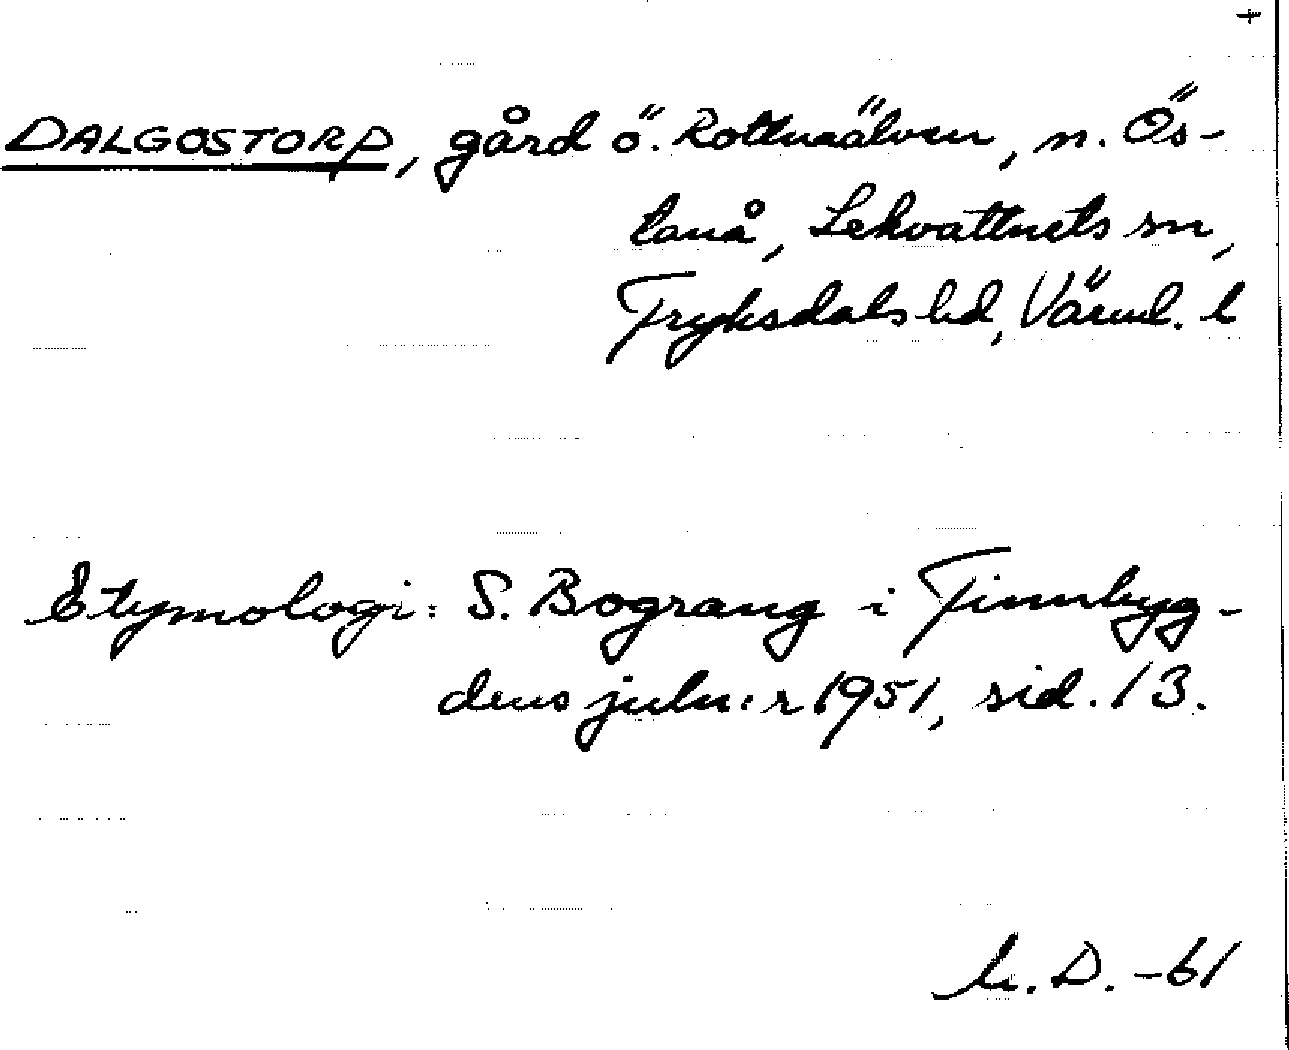 +
DALGOSTORP, gård ö. Rottnaälven, n. Ös-
lanå, Lekvattnets sn,
Fryksdals hd, Värml. l
Etymologi: S. Bograng i Finnbyg-
dens juln:r 1951, sid. 13.
D. -61